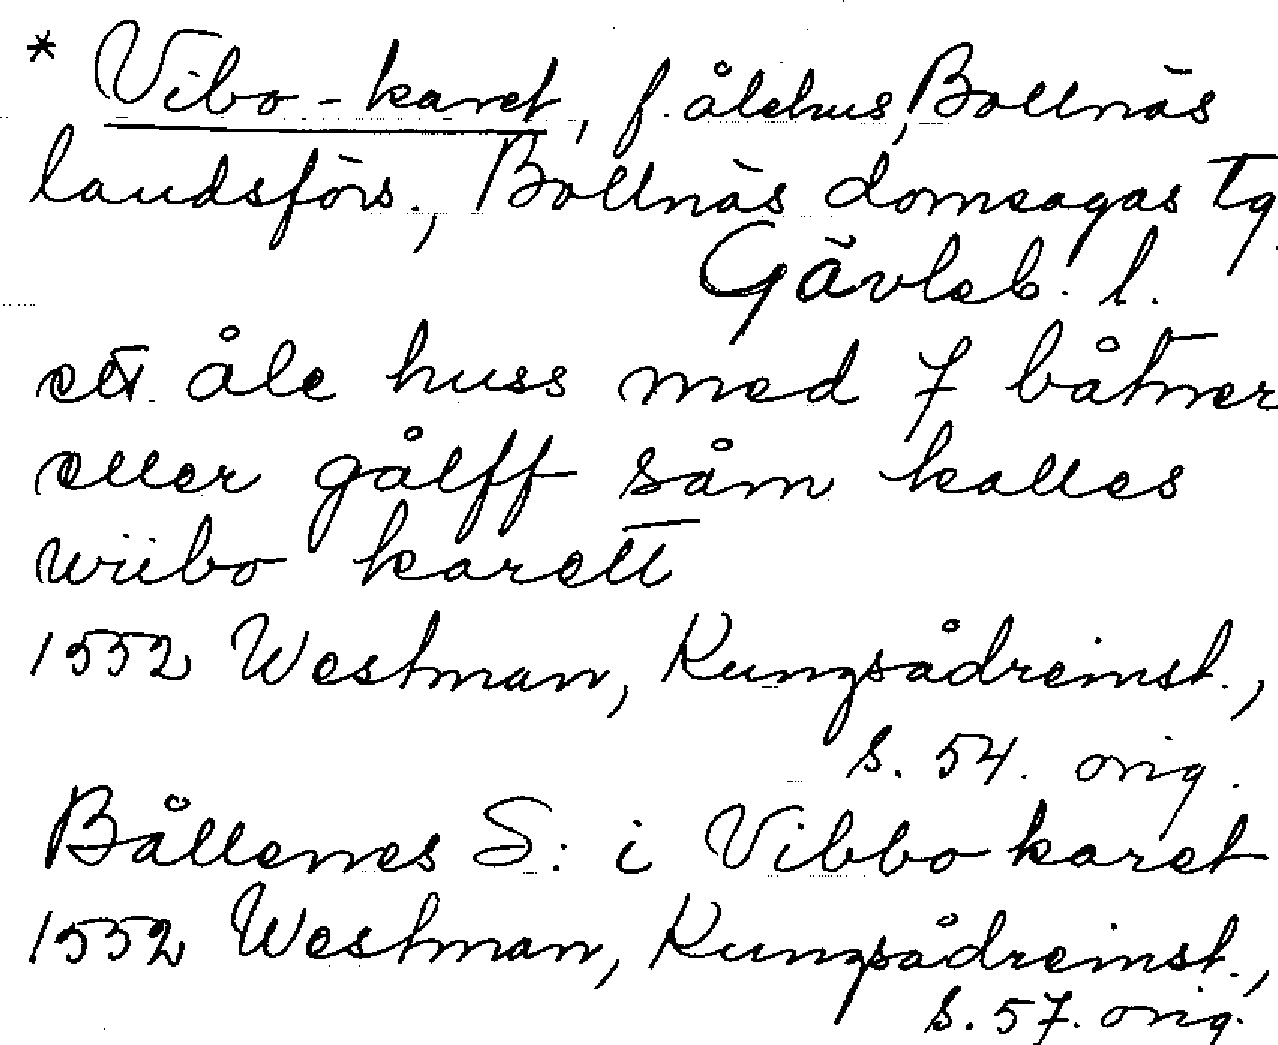 * Vibo-karet, f. ålehus, Bollnäs
landsförs., Bollnäs domsagas tg
Gävleb. l.
ett åle huss med 7 båtner
eller gålff såm kalles
wiibo karett
1552 Westman, Kungsådreinst.,
s. 54. orig.
Bållenes S: i Vibbo karet
1552 Westman, Kungsådreinst.,
s. 57. orig.